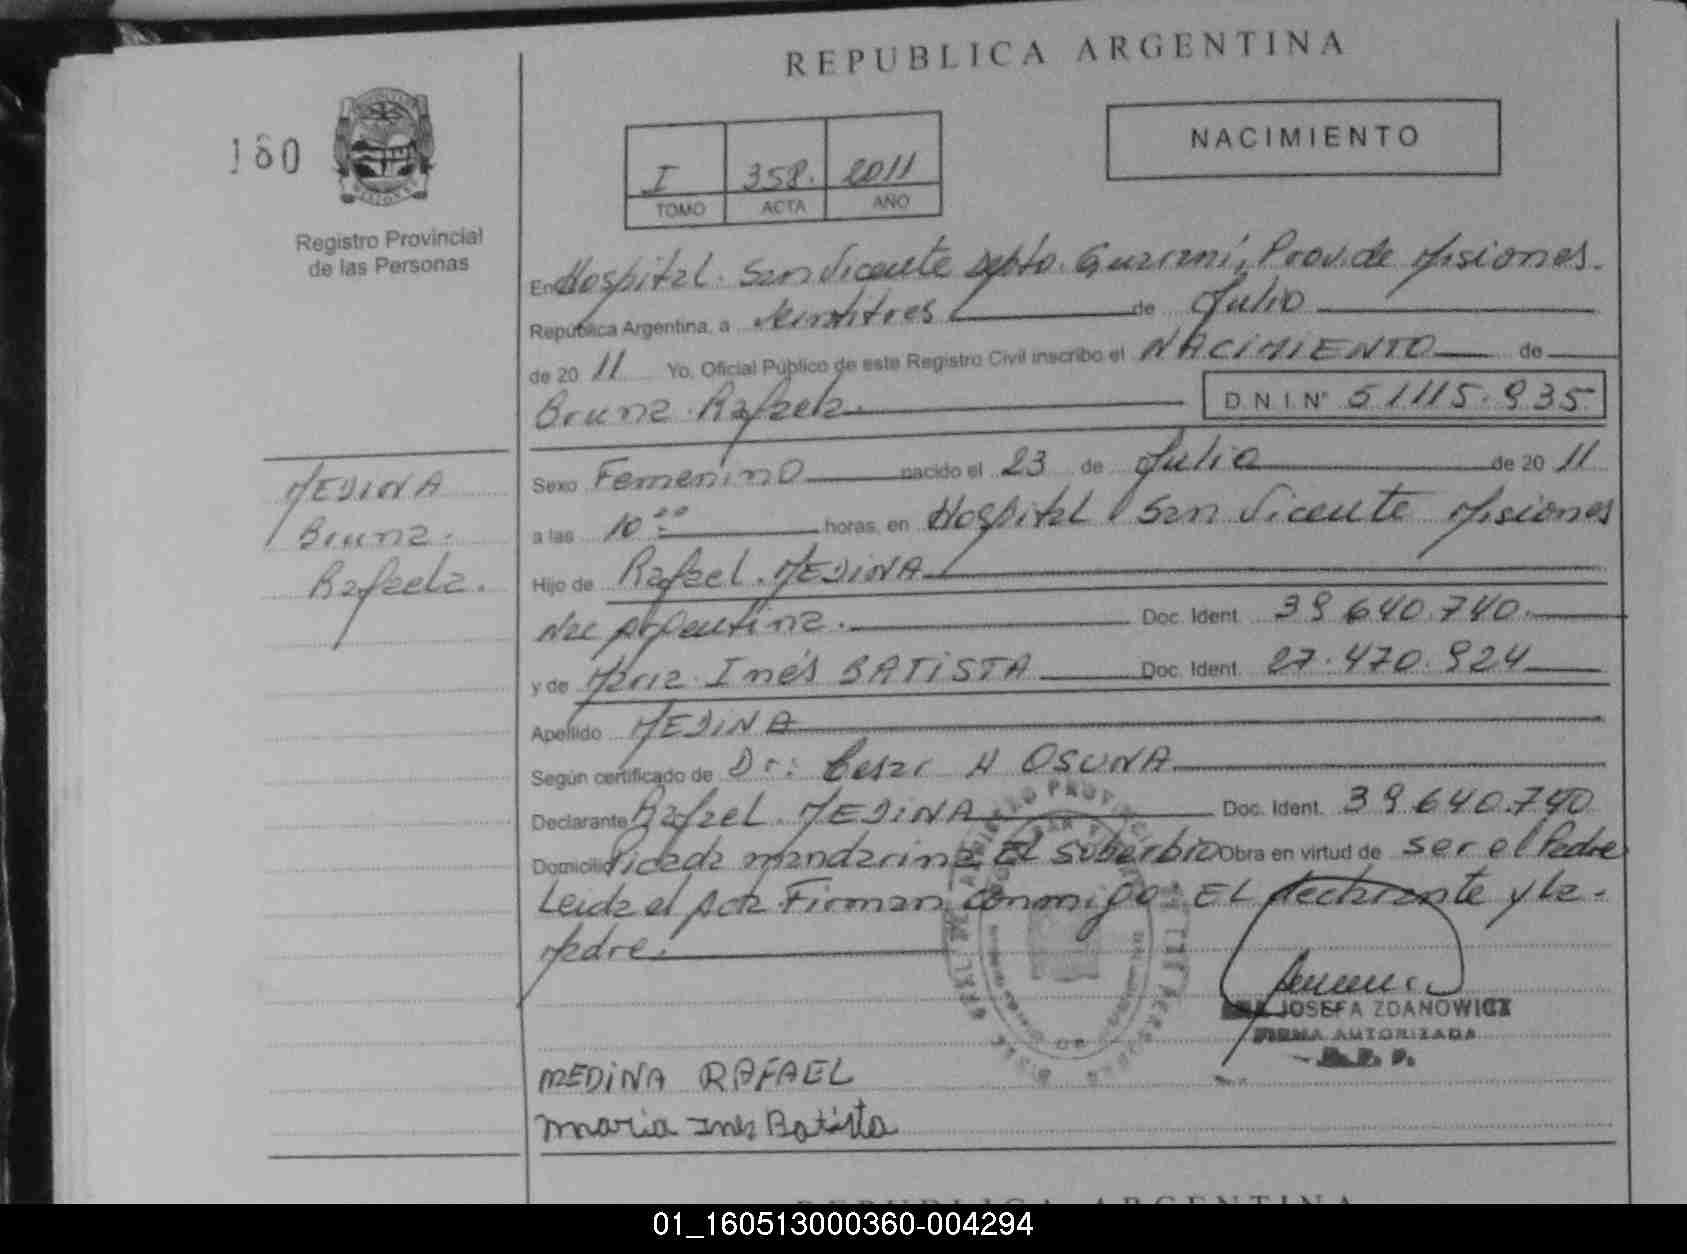 REPUBLICA ARGENTINA
160
I 358. 2011
TOMO ACTA AÑO
NACIMIENTO
Registro Provincial
de las Personas
En Hospital. San Vicente Dpto. Guaraní, Prov. de Misiones.
República Argentina, a Veintitres de Julio
de 20 11 Yo, Oficial Público de este Registro Civil inscribo el NACIMIENTO de
Bruna Rafaela. D.N.I.Nº 51115.935
MEDINA
Bruna.
Rafaela.
Sexo Femenino nacido el 23 de Julio de 20 11
a las 10 00 horas, en Hospital San Vicente Misiones
Hijo de Rafael. MEDINA
Nac Argentina. Doc. Ident. 39.640.740.
y de Maria Inés BATISTA Doc. Ident. 27.470.924
Apellido MEDINA
Según certificado de Dr: Cesar H OSUNA
Declarante Rafael. MEDINA Doc. Ident. 39.640.740
Domicilio Picada mandarina El soberbio Obra en virtud de ser el Padre
Leida el Acta Firman conmigo EL declarante y la
Madre.
JOSEFA ZDANOWICZ
FIRMA AUTORIZADA
MEDINA RAFAEL
maria Ines Batista
REPUBLICA ARGENTINA
01_160513000360-004294